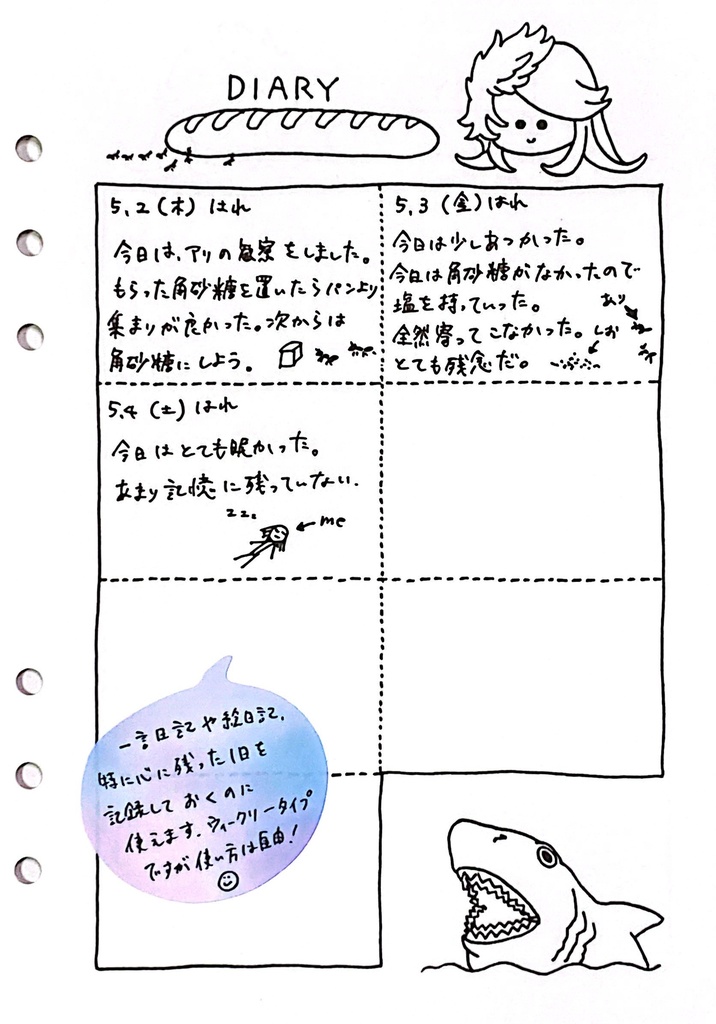 DIARY
5.2(木) はれ
今日は、アリの観察をしました。
もらった角砂糖を置いたらパンより
集まりが良かった。次からは
角砂糖にしよう。
5.3(金)はれ
今日は少しあつかった。
今日は角砂糖がなかったので
塩を持っていった。
あり
全然寄ってこなかった。
しお
とても残念だ。
5.4(土)はれ
今日はとても眠かった。
あまり記憶に残っていない.
zzz
me
一言日記や絵日記,
特に心に残った1日を
記録しておくのに
使えます.ウィークリータイプ
ですが使い方は自由!